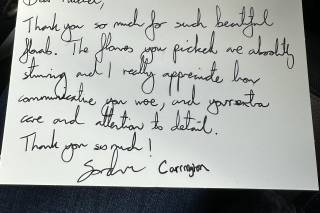 Thank you so much for such beautiful
florals. The flowers you picked are absolutely
stunning and I really appreciate how
communicative you were, and your extra
care and attention to detail.
Thank you so much!
Carrington